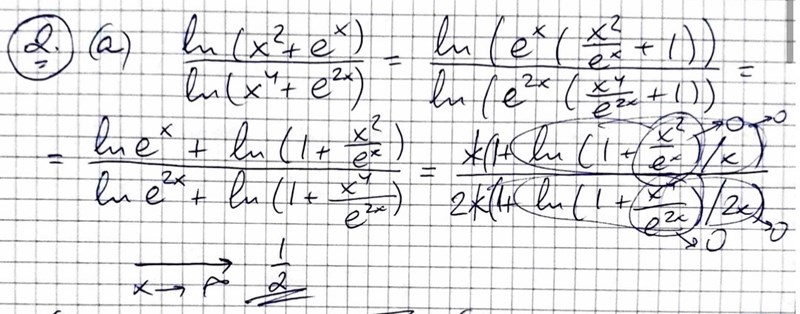 2. (a) ln(x²+eˣ) / ln(x⁴+e²ˣ) = ln(eˣ(x²/eˣ + 1)) / ln(e²ˣ(x⁴/e²ˣ + 1)) =
= (ln eˣ + ln(1 + x²/eˣ)) / (ln e²ˣ + ln(1 + x⁴/e²ˣ)) = x(1 + ln(1 + x²/eˣ)/x) / 2x(1 + ln(1 + x⁴/e²ˣ)/2x) →0 →0 →0 →0
⟶ x→∞ 1/2